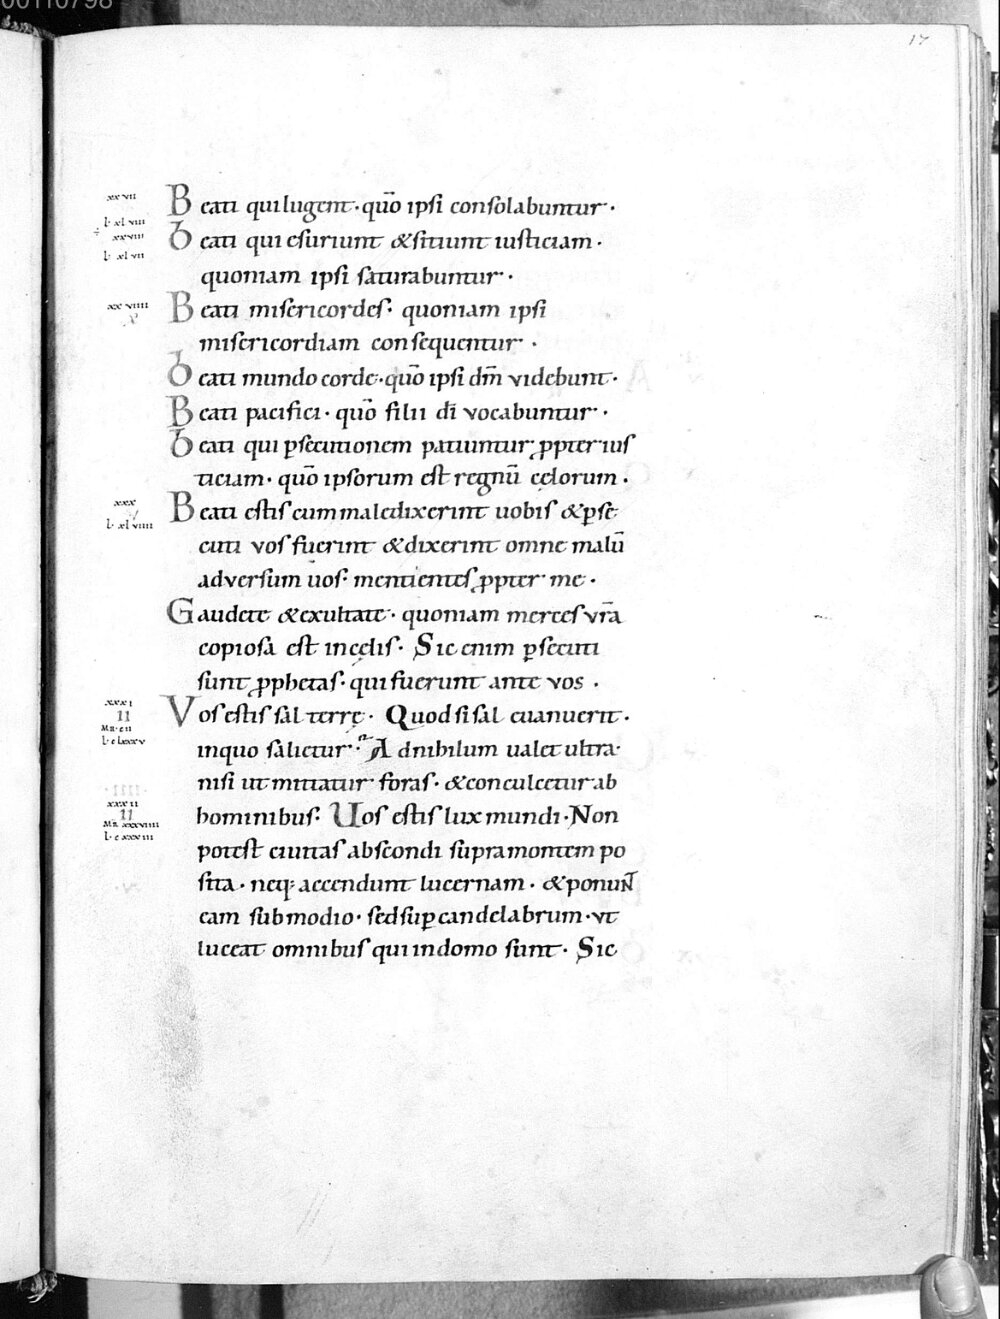 00110798
17
xxvii
Beati qui lugent · quō ipsi consolabuntur ·
l· xlviii
xxviii
Beati qui esuriunt & sitiunt iusticiam ·
l· xlvii
quoniam ipsi saturabuntur ·
xxviiii
x
Beati misericordes · quoniam ipsi
misericordiam consequentur ·
Beati mundo corde · quō ipsi dm̄ videbunt ·
Beati pacifici · quō filii dī vocabuntur ·
Beati qui ꝑsecutionem patiuntur ꝓpter ius
ticiam · quō ipsorum est regnū cęlorum ·
xxx
Beati estis cum maledixerint uobis & ꝑse
l· xlviiii
cuti vos fuerint & dixerint omne malū
adversum uos · mentientes ꝓpter me ·
Gaudete & exultate · quoniam merces vr̄a
copiosa est in cęlis · Sic enim ꝑsecuti
sunt ꝓphetas · qui fuerunt ante vos ·
xxxi
II
Vos estis sal terrę · Quod si sal euanuerit ·
Mr̄· cii
l· clxxxv
in quo salietur · Ad nihilum ualet ultra ·
nisi ut mittatur foras · & conculcetur ab
xxxii
II
hominibus · Uos estis lux mundi · Non
Mr̄ xxxviiii
l· cxxxiii
potest ciuitas abscondi supra montem po
sita · neq; accendunt lucernam · & ponunt
eam sub modio · sed suꝑ candelabrum · vt
luceat omnibus qui in domo sunt · Sic